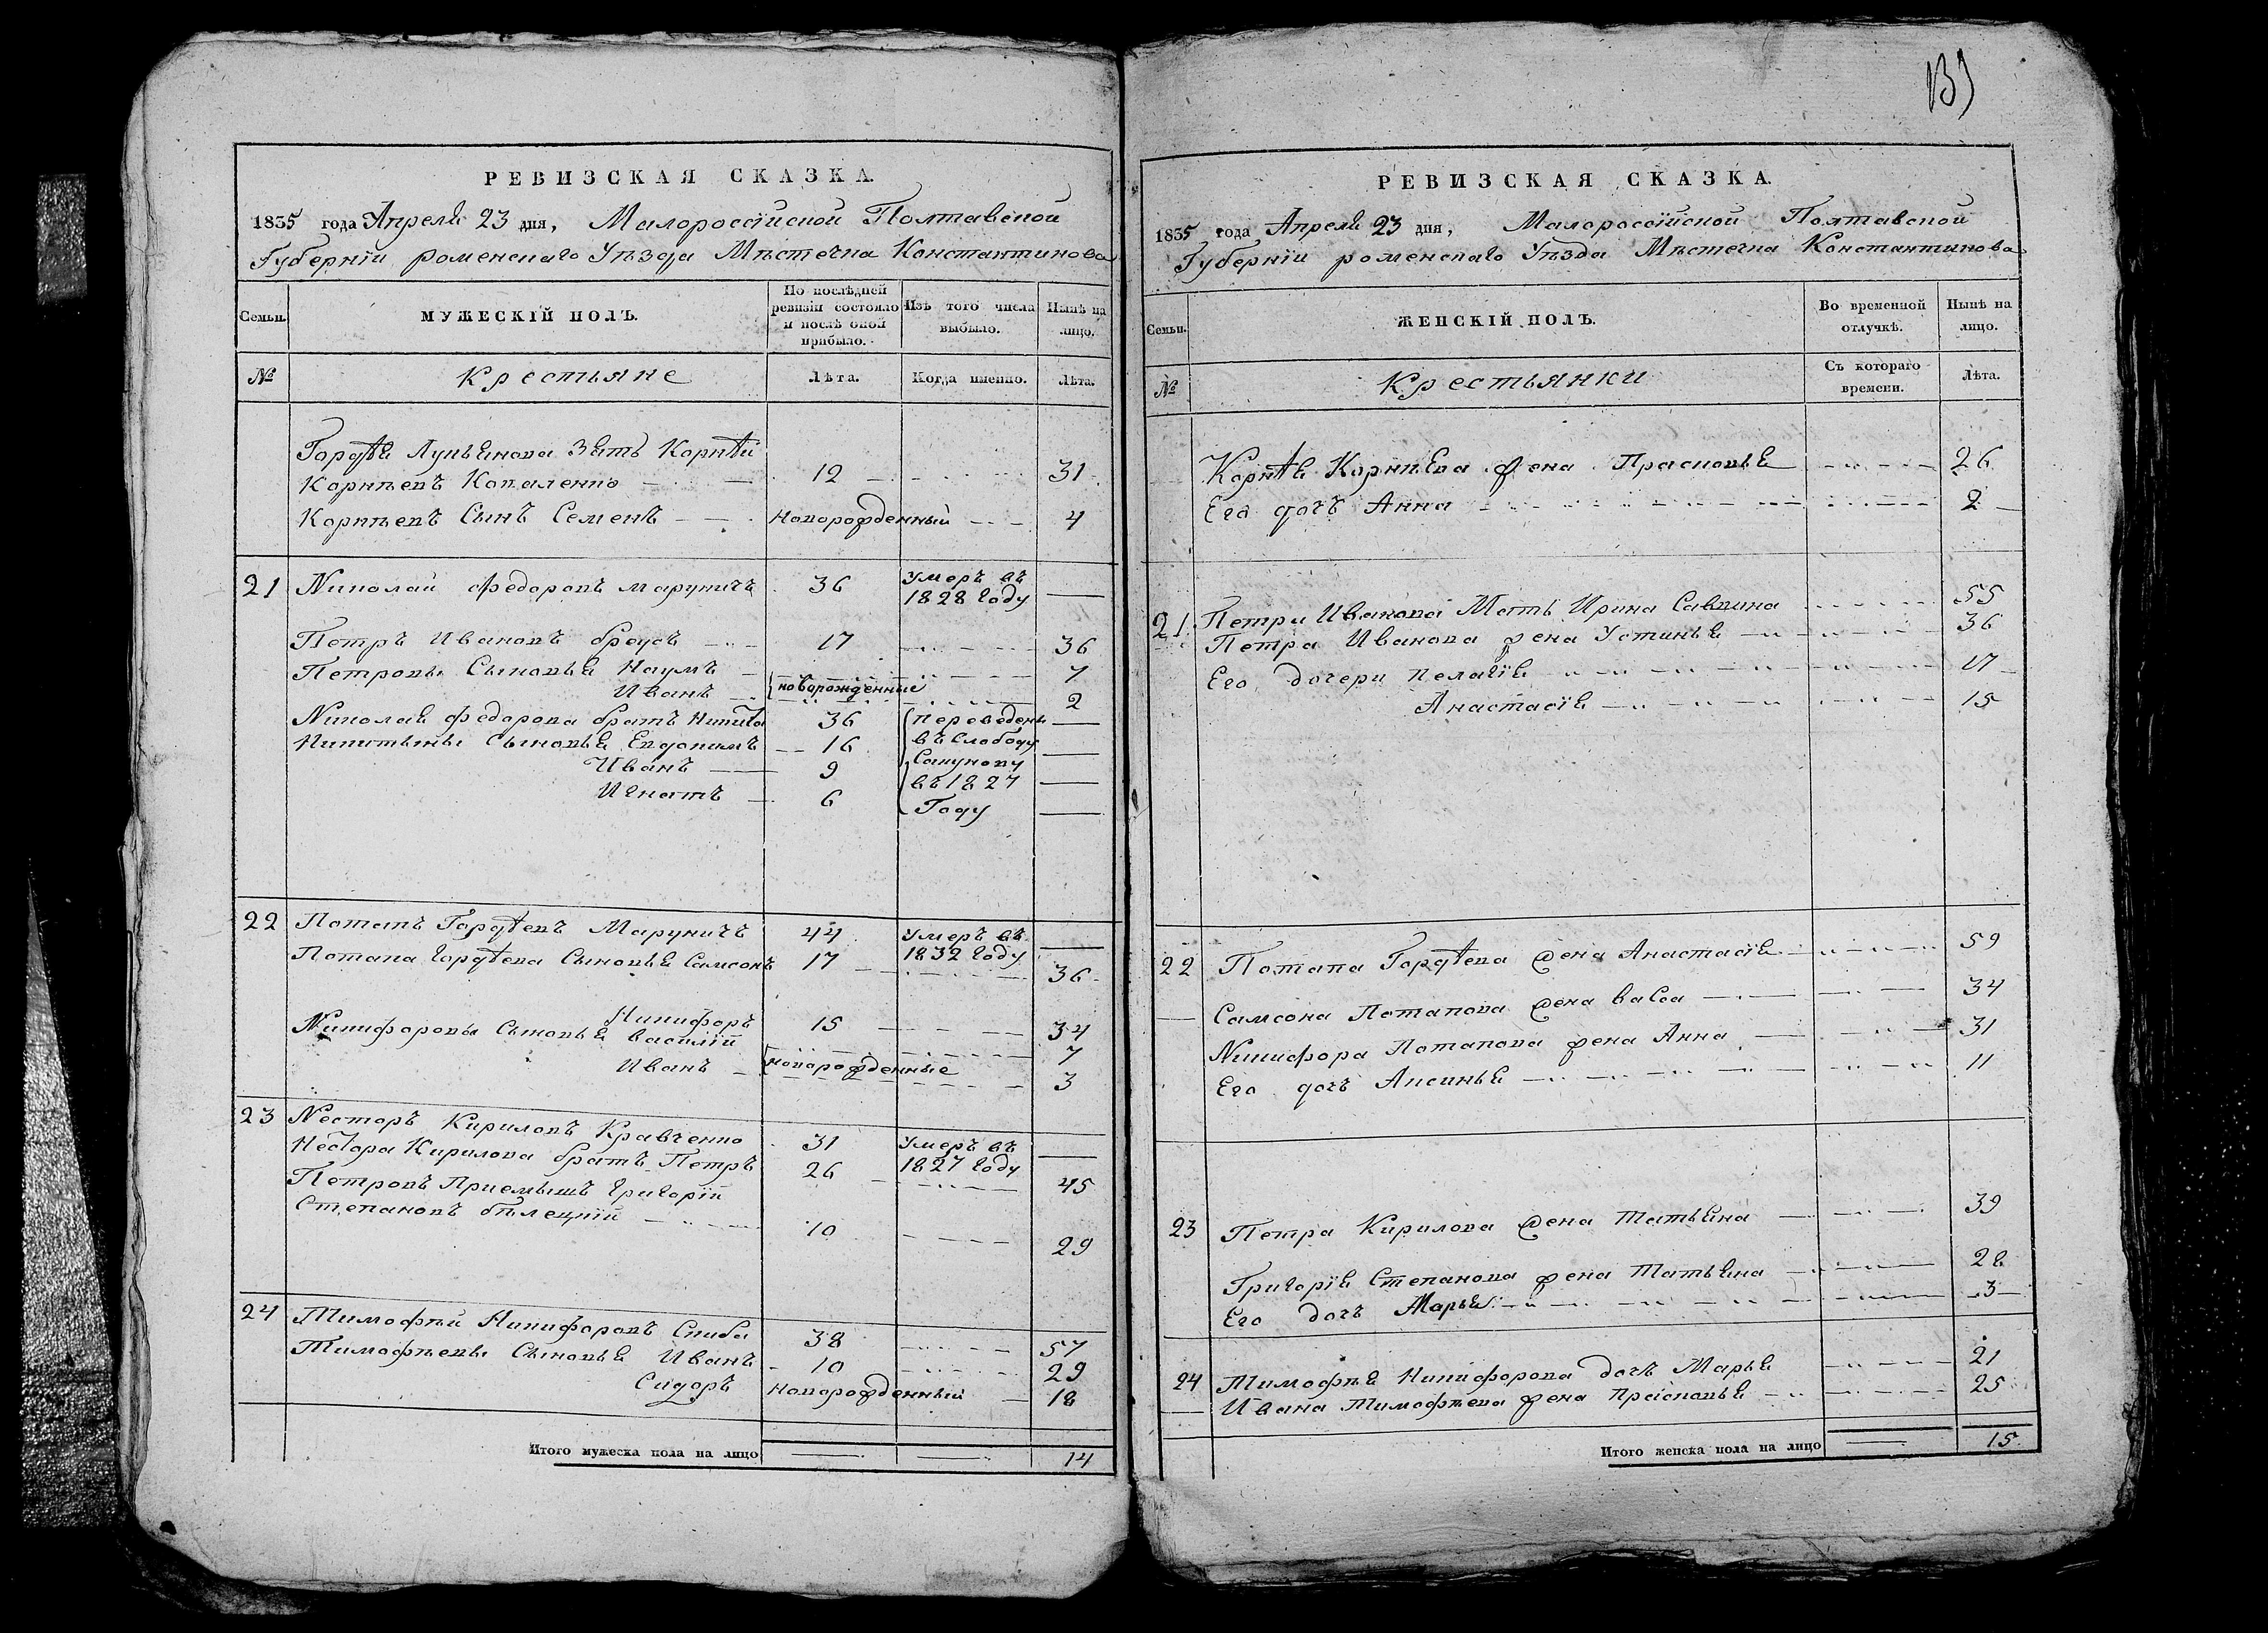 РЕВИЗСКАЯ СКАЗКА.
1835 года Апреля 23 дня, Малороссійской Полтавской
Губерніи роменскаго Уѣзда Мѣстечка Константинова
Семьи. МУЖЕСКІЙ ПОЛЪ. По послѣдней ревизіи состояло и послѣ оной прибыло. Изъ того числа выбыло. Нынѣ на лицо.
№ Крестьяне Лѣта. Когда именно. Лѣта.
Гордѣя Лукьянова Зять Корнѣй
Корнѣевъ Коваленко 12 31
Корнѣевъ Сынъ Семенъ Новорожденный 4
21 Николай Федоровъ Маруничъ 36 Умеръ въ 1828 году
Петръ Ивановъ броусъ 17 36
Петровы Сыновья Наумъ 7
Иванъ новорожденные 2
Николая Федорова братъ Никита 36 переведены
Никитины Сыновья Евдокимъ 16 въ Слободу
Иванъ 9 Сакунову въ 1827
Игнатъ 6 Году
22 Потапъ Гордѣевъ Маруничъ 44 Умеръ въ 1832 году
Потапа Гордѣева Сыновья Самсонъ 17 36
Никифоръ 15 34
Никифоровы Сыновья василій 7
Иванъ новорожденные 3
23 Несторъ Кириловъ Кравченко 31 Умеръ въ 1827 году
Нестора Кирилова братъ Петръ 26 45
Петровъ Приемышъ григорій
Степановъ бѣлецкій 10 29
24 Тимофѣй Никифоровъ Скиба 38 57
Тимофѣевы Сыновья Иванъ 10 29
Сидоръ Новорожденный 18
Итого мужеска пола на лицо 14
133
РЕВИЗСКАЯ СКАЗКА.
1835 года Апреля 23 дня, Малороссійской Полтавской
Губерніи роменскаго Уѣзда Мѣстечка Константинова
Семьи. ЖЕНСКІЙ ПОЛЪ. Во временной отлучкѣ. Нынѣ на лицо.
№ Крестьянки Съ котораго времени. Лѣта.
Корнѣя Корнѣева жена Прасковья 26
Его дочь Анна 2
21 Петра Иванова Мать Ирина Саввина 55
Петра Иванова жена Устинья 36
Его дочери пелагія 17
Анастасія 15
22 Потапа Гордѣева жена Анастасія 59
Самсона Потапова жена васса 34
Никифора Потапова жена Анна 31
Его дочь Аксинья 11
23 Петра Кирилова жена татьяна 39
Григорія Степанова жена татьяна 28
Его дочь Марья 3
24 Тимофѣя Никифорова дочь Марья 21
Ивана тимофѣева жена прасковья 25
Итого женска пола на лицо 15